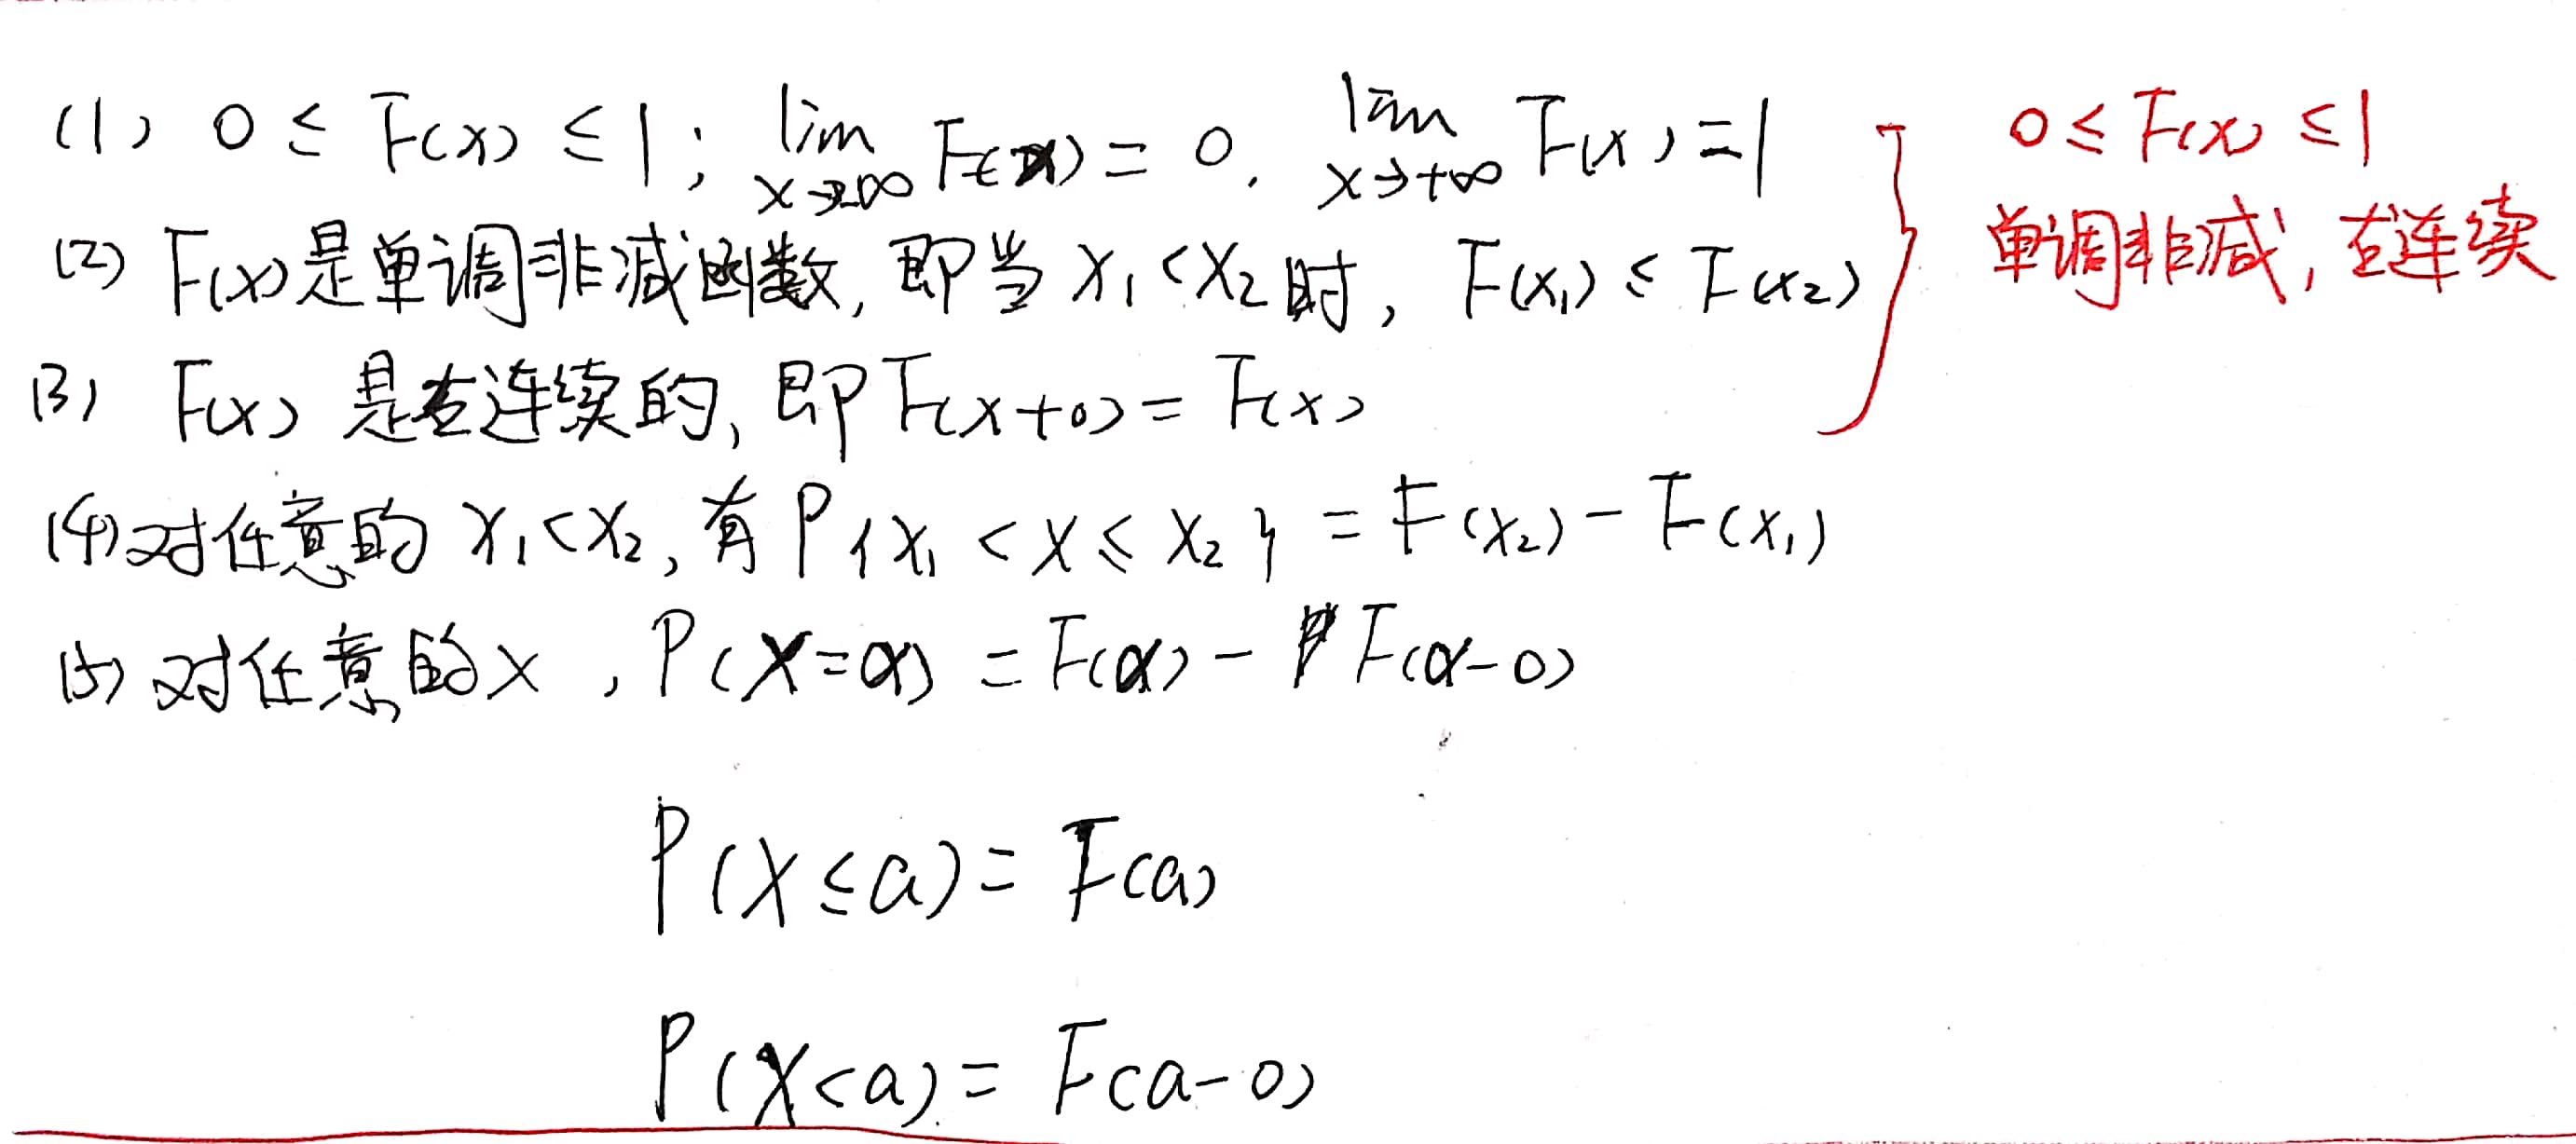 (1) 0 ≤ F(x) ≤ 1; lim x→-∞ F(x) = 0, lim x→+∞ F(x) = 1
0 ≤ F(x) ≤ 1
(2) F(x)是单调非减函数, 即当 x₁<x₂时, F(x₁) ≤ F(x₂)
单调非减, 右连续
(3) F(x) 是右连续的, 即F(x+0) = F(x)
(4) 对任意的 x₁<x₂, 有P{x₁ < X ≤ x₂} = F(x₂) - F(x₁)
(5) 对任意的x, P(X=a) = F(a) - F(a-0)
P(X≤a) = F(a)
P(X<a) = F(a-0)